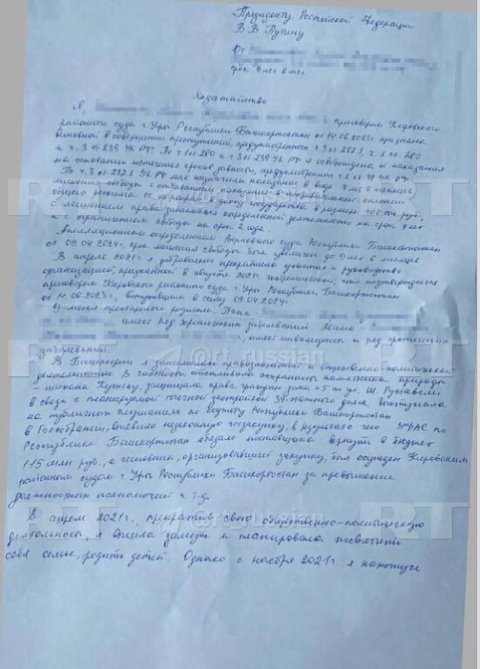 Президенту Российской Федерации
В.В Путину
От
срок 9 лет 6 мес
Ходатайство
Я, приговором Кировского
районного суда г Уфы Республики Башкортостан от 14.06.2023г признана
виновной в совершении преступлений, предусмотренных ч 1 ст 282.1, ч 1 ст. 280
ч 3 ст 239 УК РФ. По ч 1 ст 280 и ч 3 ст 239 УК РФ я освобождена от наказания
на основании истечения сроков давности, предусмотренных
По ч 3 ст 282.1 УК РФ мне назначено наказание в виде 7 лет 6 месяцев
лишения свободы с отбыванием наказания в исправительной колонии
общего режима со штрафом в доход государства в размере 400 000 руб,
с лишением права заниматься определенной деятельностью на срок
и с ограничением свободы на срок 2 года
Апелляционным определением Верховного суда Республики Башкортостан
от 09.04 2024г. срок лишения свободы был увеличен до 9 лет 6 месяцев
В апреле 2021г. я добровольно прекратила участие и руководство
организацией, признанной в августе 2021г. экстремистской, что подтверждается
приговором Кировского районного суда г. Уфы Республики Башкортостан
от 14.06.2023г., вступившим в силу 09.04.2024г
У меня престарелые родители. Папа -
имеет ряд хронических заболеваний Мама -
, имеет инвалидность и ряд хронических
заболеваний.
В Башкирии я занималась правозащитной и социально-политической
деятельностью. В частности отстаивала сохранность памятника природы
- шихана Куштау, защищала права граждан дома 5 по ул. Ш. Руставели
в связи с планируемой точечной застройкой 34-этажного дома, выступала
на публичных слушаниях по бюджету Республики Башкортостан
в Госсобрании, выявила незаконную госзакупку, в результате чего УФАС по
Республике Башкортостан обязало поставщика вернуть в бюджет
115 млн руб., а чиновник, организовавший закупку, был осужден Кировским
районным судом г Уфы Республики Башкортостан за превышение
должностных полномочий и т.д.
В апреле 2021г., прекратив свою общественно-политическую
деятельность, я вышла замуж и планировала посвятить
себя семье, родить детей. Однако с ноября 2021г. я нахожусь
RT
@rt_russian
RT
@rt_russian
RT